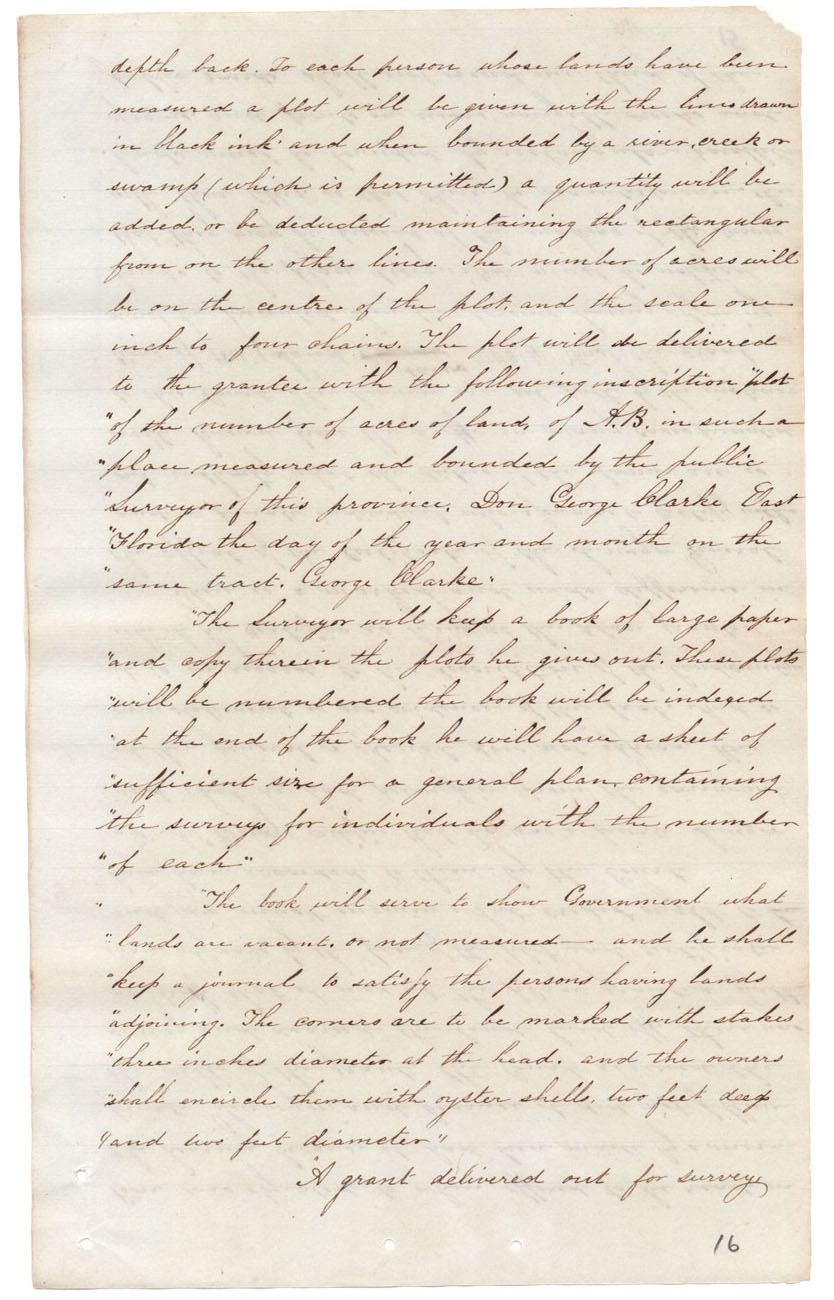 depth back. To each person whose lands have been
measured a plot will be given with the lines drawn
in black ink and when bounded by a river, creek or
swamp (which is permitted) a quantity will be
added, or be deducted maintaining the rectangular
from on the other lines. The number of acres will
be on the centre of the plot, and the scale one
inch to four chains. The plot will de delivered
to the grantee with the following inscription "plot
"of the number of acres of land, of A.B. in such a
"place measured and bounded by the public
"Surveyor of this province, Don George Clarke East
"Florida the day of the year and month on the
"same tract. George Clarke"
"The Surveyor will keep a book of large paper
"and copy therein the plots he gives out. These plots
"will be numbered the book will be indexed
"at the end of the book he will have a sheet of
"sufficient size for a general plan, containing
"the surveys for individuals with the number
"of each"
" "The book will serve to show Government what
"lands are vacant, or not measured — and he shall
"keep a journal to satisfy the persons having lands
"adjoining. The corners are to be marked with stakes
"three inches diameter at the head, and the owners
"shall encircle them with oyster shells, two feet deep
"and two feet diameter"
"A grant delivered out for survey
16